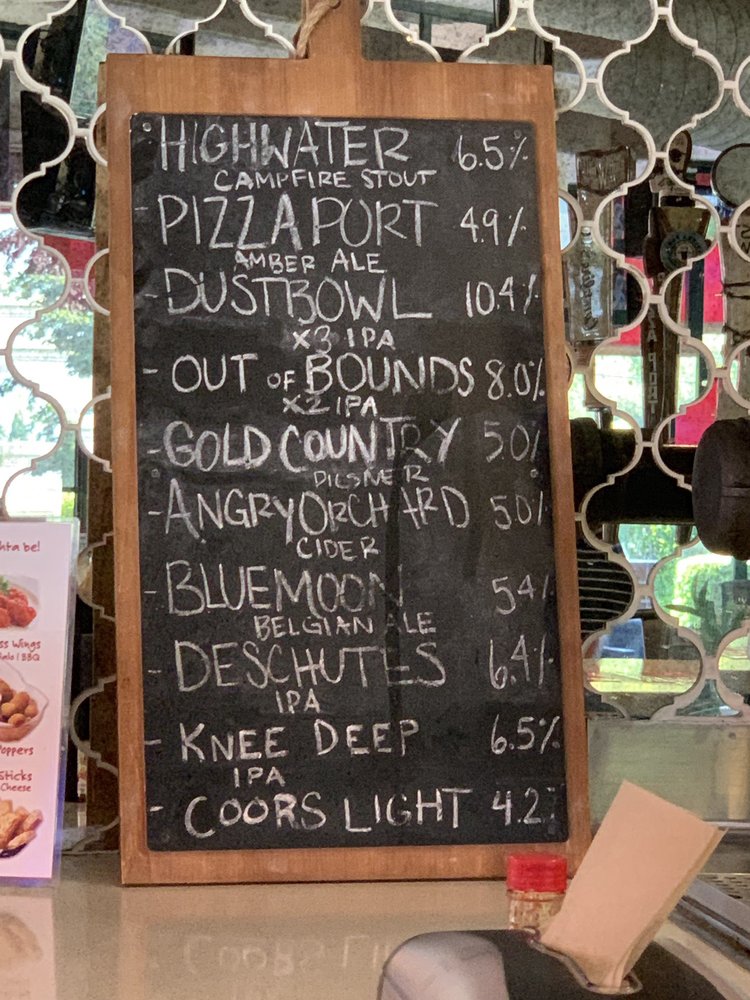 HIGHWATER 6.5%
CAMPFIRE STOUT
- PIZZA PORT 4.9%
AMBER ALE
- DUSTBOWL 10.4%
X3 IPA
- OUT OF BOUNDS 8.0%
X2 IPA
- GOLD COUNTRY 5.0%
PILSNER
- ANGRY ORCHARD 5.0%
CIDER
- BLUEMOON 5.4%
BELGIAN ALE
- DESCHUTES 6.4%
IPA
- KNEE DEEP 6.5%
IPA
- COORS LIGHT 4.2%
hta be!
ss Wings
BBQ
Poppers
Sticks
Cheese